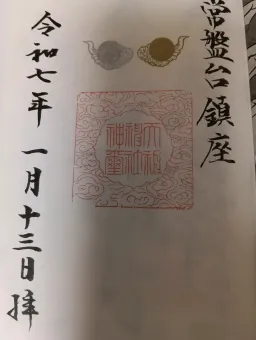 常盤台鎮座
天祖神社神璽
令和七年 一月十三日 拝